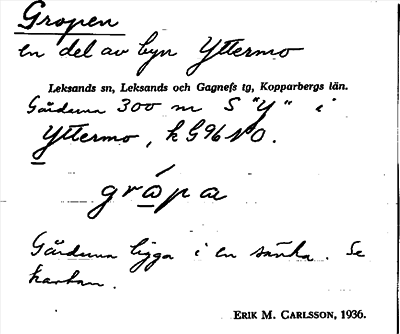 Gropen
en del av byn Yttermo
Leksands sn, Leksands och Gagnefs tg, Kopparbergs län.
Gårdarna 300 m S "Y" i
Yttermo, k G96 NO.
gràpa
Gårdarna ligga i en sänka. Se
kartan.
ERIK M. CARLSSON, 1936.